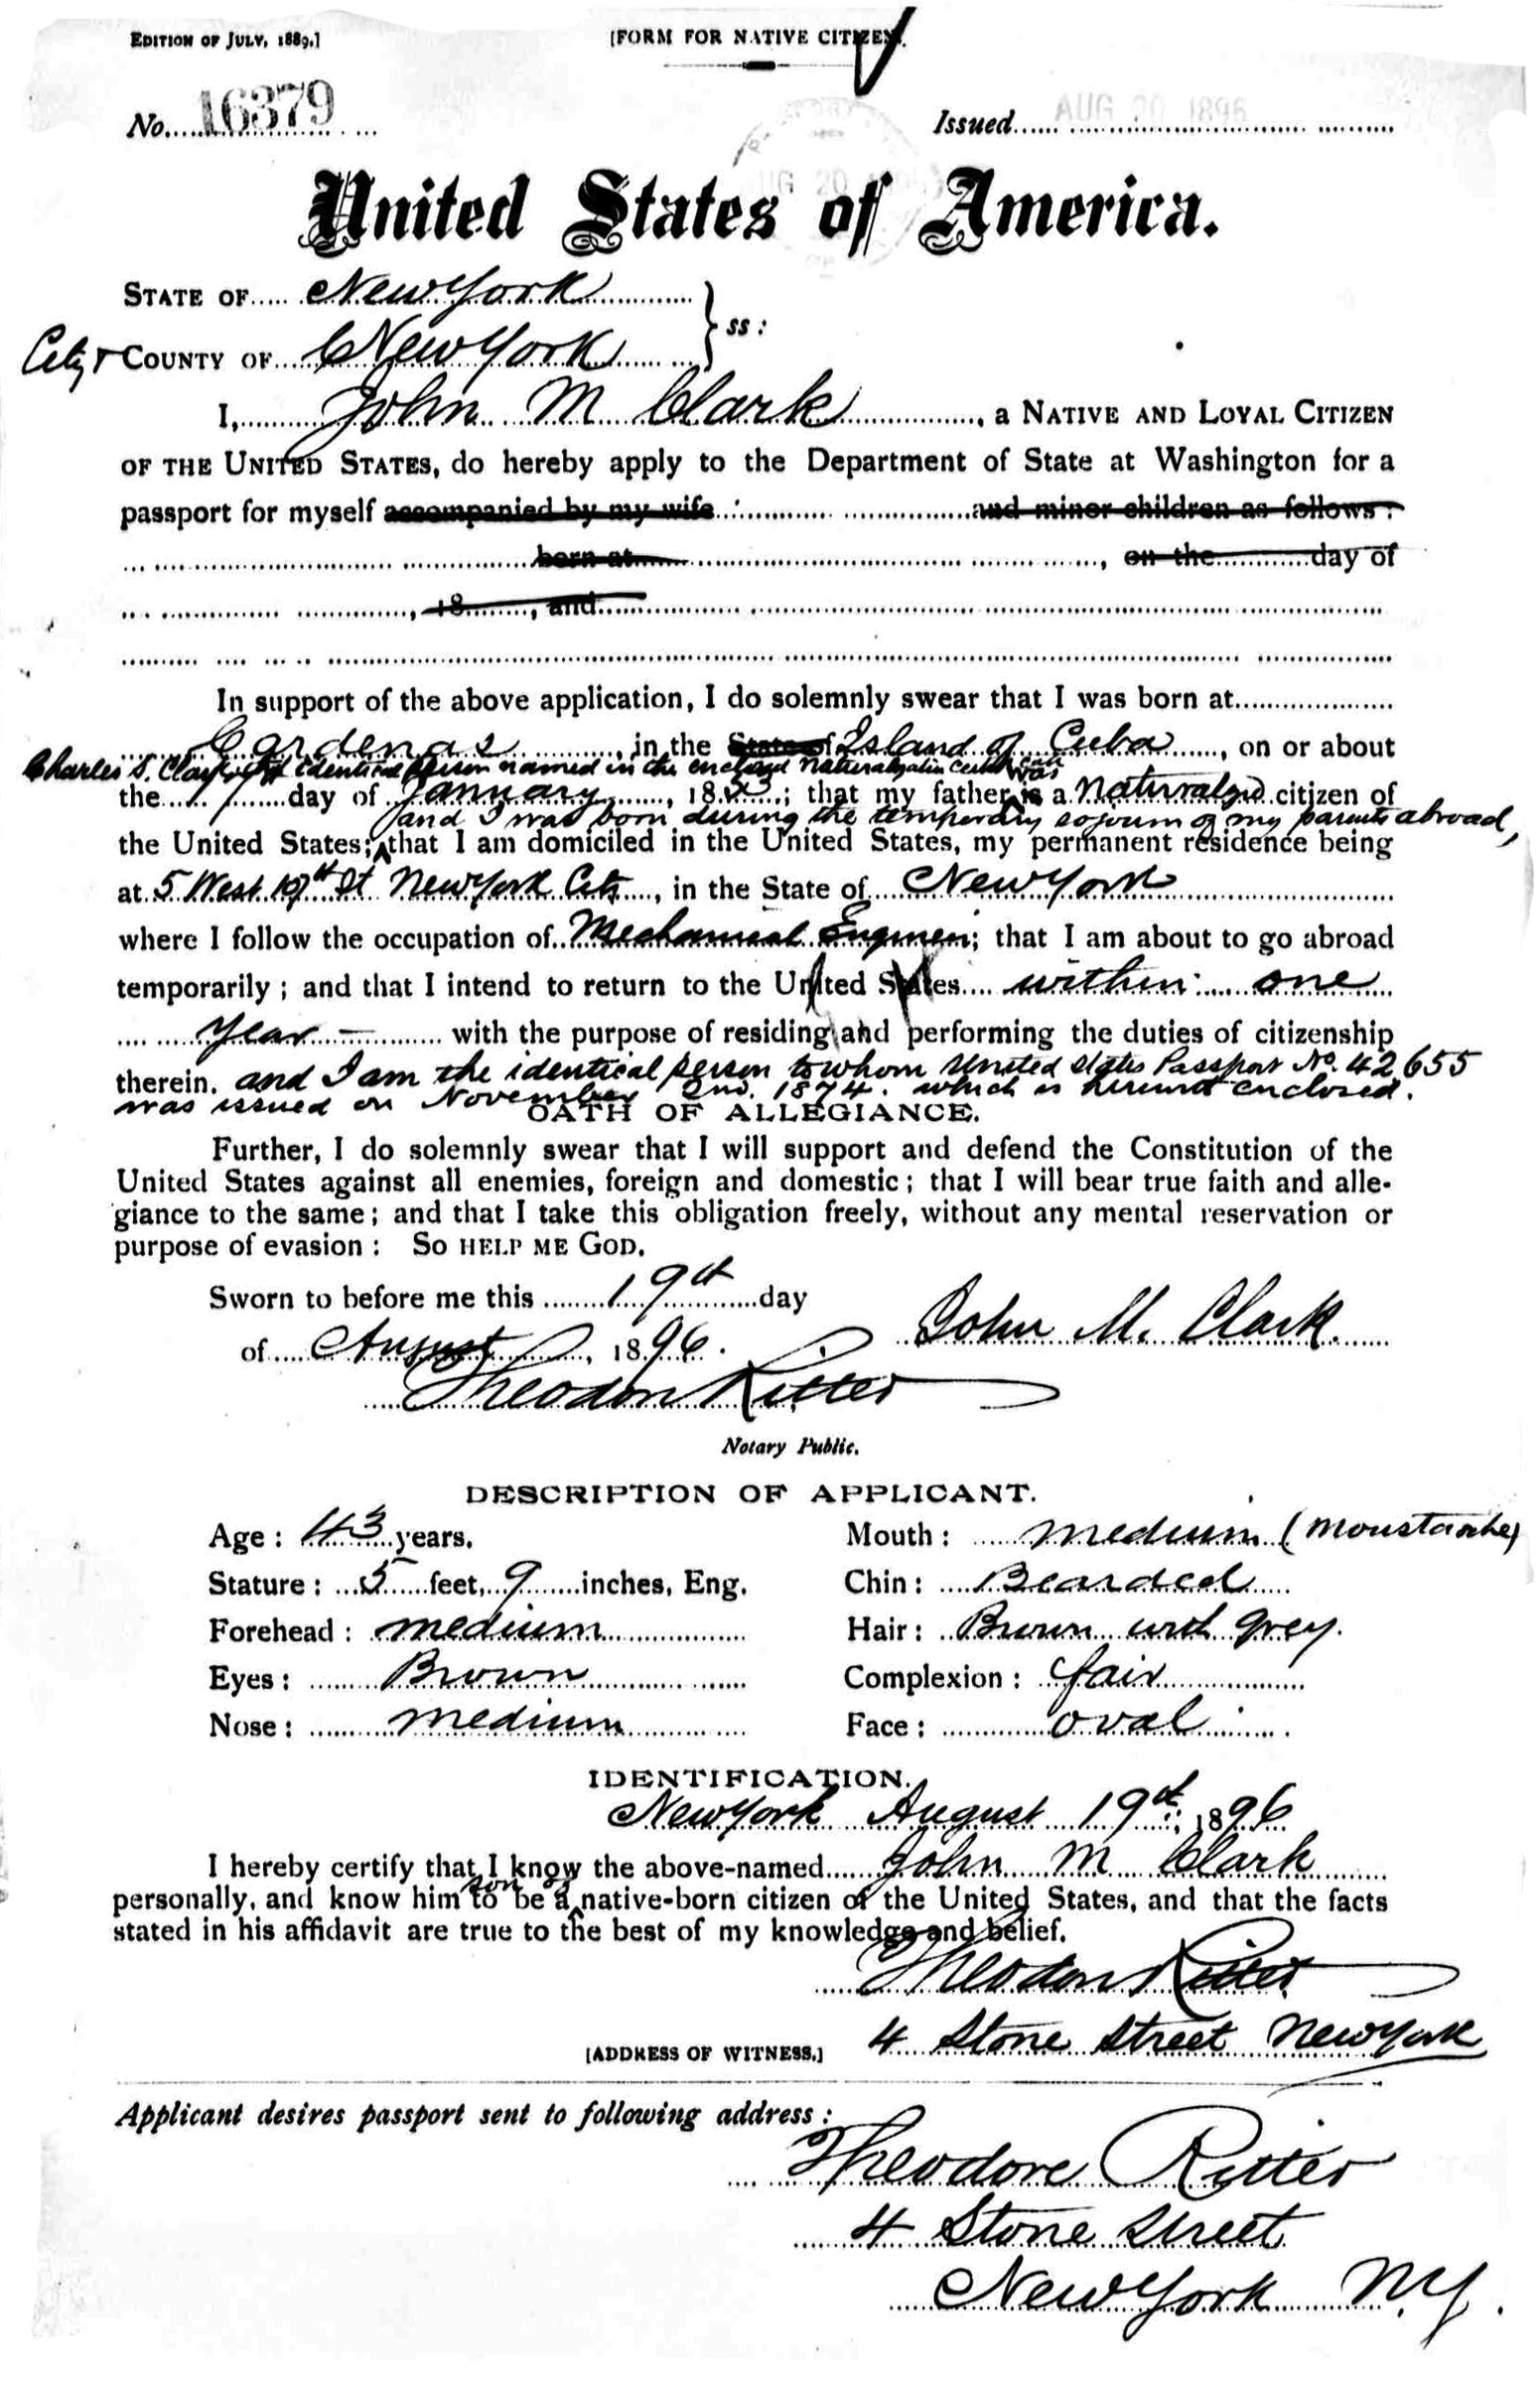 EDITION OF JULY, 1889.]
[FORM FOR NATIVE CITIZEN.
No. 16379
Issued AUG 20 1896
AUG 20
United States of America.
STATE OF New York
City & COUNTY OF New York } ss:
I, John M Clark, a NATIVE AND LOYAL CITIZEN
OF THE UNITED STATES, do hereby apply to the Department of State at Washington for a
passport for myself accompanied by my wife and minor children as follows:
born at , on the day of
, 18 , and
In support of the above application, I do solemnly swear that I was born at
Cardenas, in the State of Island of Cuba, on or about
Charles S. identical person named in the enclosed Naturalization Certificate was
the 1 day of January, 1853; that my father is a Naturalized citizen of
and I was born during the temporary sojourn of my parents abroad,
the United States; that I am domiciled in the United States, my permanent residence being
at 5 West 19th St New York City, in the State of New York
where I follow the occupation of Mechanical Engineer; that I am about to go abroad
temporarily; and that I intend to return to the United States within one
year with the purpose of residing and performing the duties of citizenship
therein. and I am the identical person to whom United States Passport No. 42655
was issued on November 2nd. 1874. which is herewith enclosed.
OATH OF ALLEGIANCE.
Further, I do solemnly swear that I will support and defend the Constitution of the
United States against all enemies, foreign and domestic; that I will bear true faith and alle-
giance to the same; and that I take this obligation freely, without any mental reservation or
purpose of evasion: SO HELP ME GOD.
Sworn to before me this 19th day
of August, 1896.
John M. Clark.
Theodore Ritter
Notary Public.
DESCRIPTION OF APPLICANT.
Age: 43 years.
Mouth: medium (moustache)
Stature: 5 feet, 9 inches, Eng.
Chin: Bearded
Forehead: medium
Hair: Brown with grey.
Eyes: Brown
Complexion: fair
Nose: medium
Face: oval
IDENTIFICATION.
New York August 19th, 1896
I hereby certify that I know the above-named John M Clark
son of
personally, and know him to be a native-born citizen of the United States, and that the facts
stated in his affidavit are true to the best of my knowledge and belief.
Theodore Ritter
[ADDRESS OF WITNESS.] 4 Stone Street New York
Applicant desires passport sent to following address:
Theodore Ritter
4 Stone Street
New York N.Y.